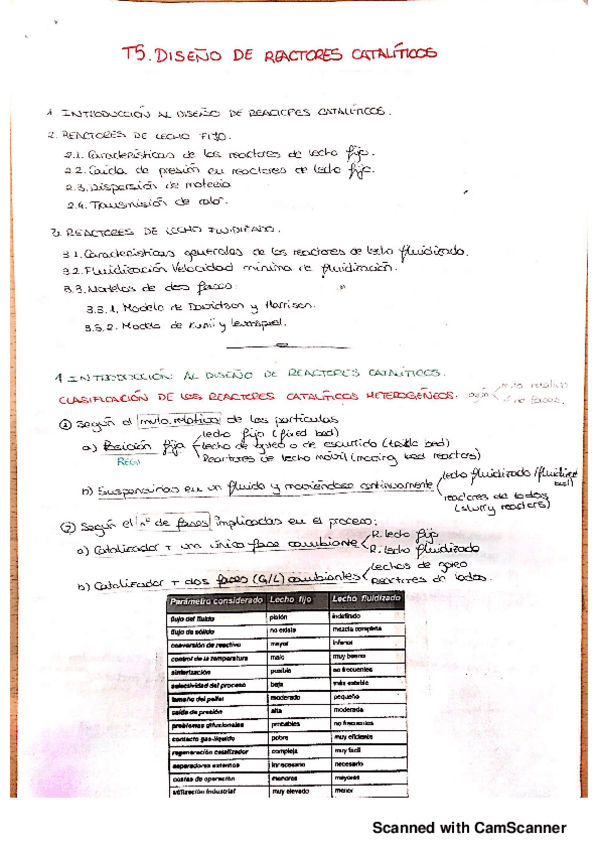 T5. DISEÑO DE REACTORES CATALÍTICOS
1. INTRODUCCIÓN AL DISEÑO DE REACTORES CATALÍTICOS.
2. REACTORES DE LECHO FIJO.
2.1. Características de los reactores de lecho fijo.
2.2. Caída de presión en reactores de lecho fijo.
2.3. Dispersión de materia
2.4. Transmisión de calor.
3. REACTORES DE LECHO FLUIDIZADO.
3.1. Características generales de los reactores de lecho fluidizado.
3.2. Fluidización Velocidad mínima de fluidización.
3.3. Modelos de dos fases.
3.3.1. Modelo de Davidson y Harrison.
3.3.2. Modelo de Kunii y Levenspiel.
1 INTRODUCCIÓN AL DISEÑO DE REACTORES CATALÍTICOS.
CLASIFICACIÓN DE LOS REACTORES CATALÍTICOS HETEROGÉNEOS: según mvto relativo
nº de fases.
① Según el mvto relativo de las partículas
a) Posición fija
lecho fijo (fixed bed)
lecho de goteo o de escurrido (trickle bed)
Reactores de lecho móvil (moving bed reactors)
b) Suspendidas en un fluido y moviéndose continuamente
lecho fluidizado (fluidized bed)
reactores de lodos (slurry reactors)
② Según el nº de fases implicadas en el proceso:
a) Catalizador + un única fase cambiante
R. lecho fijo
R. lecho fluidizado
b) Catalizador + dos fases (G/L) cambiantes
lechos de goteo
Reactores de lodos.
Parámetro considerado Lecho fijo Lecho fluidizado
flujo del fluido pistón indefinido
flujo de sólido no existe mezcla completa
conversión de reactivo mayor inferior
control de la temperatura malo muy bueno
sinterización posible no frecuentes
selectividad del proceso baja más estable
tamaño del pellet moderado pequeño
caída de presión alta moderada
problemas difusionales probables no frecuentes
contacto gas-líquido pobre muy eficiente
regeneración catalizador compleja muy fácil
separadores externos innecesario necesario
costes de operación menores mayores
utilización industrial muy elevado menor
Scanned with CamScanner